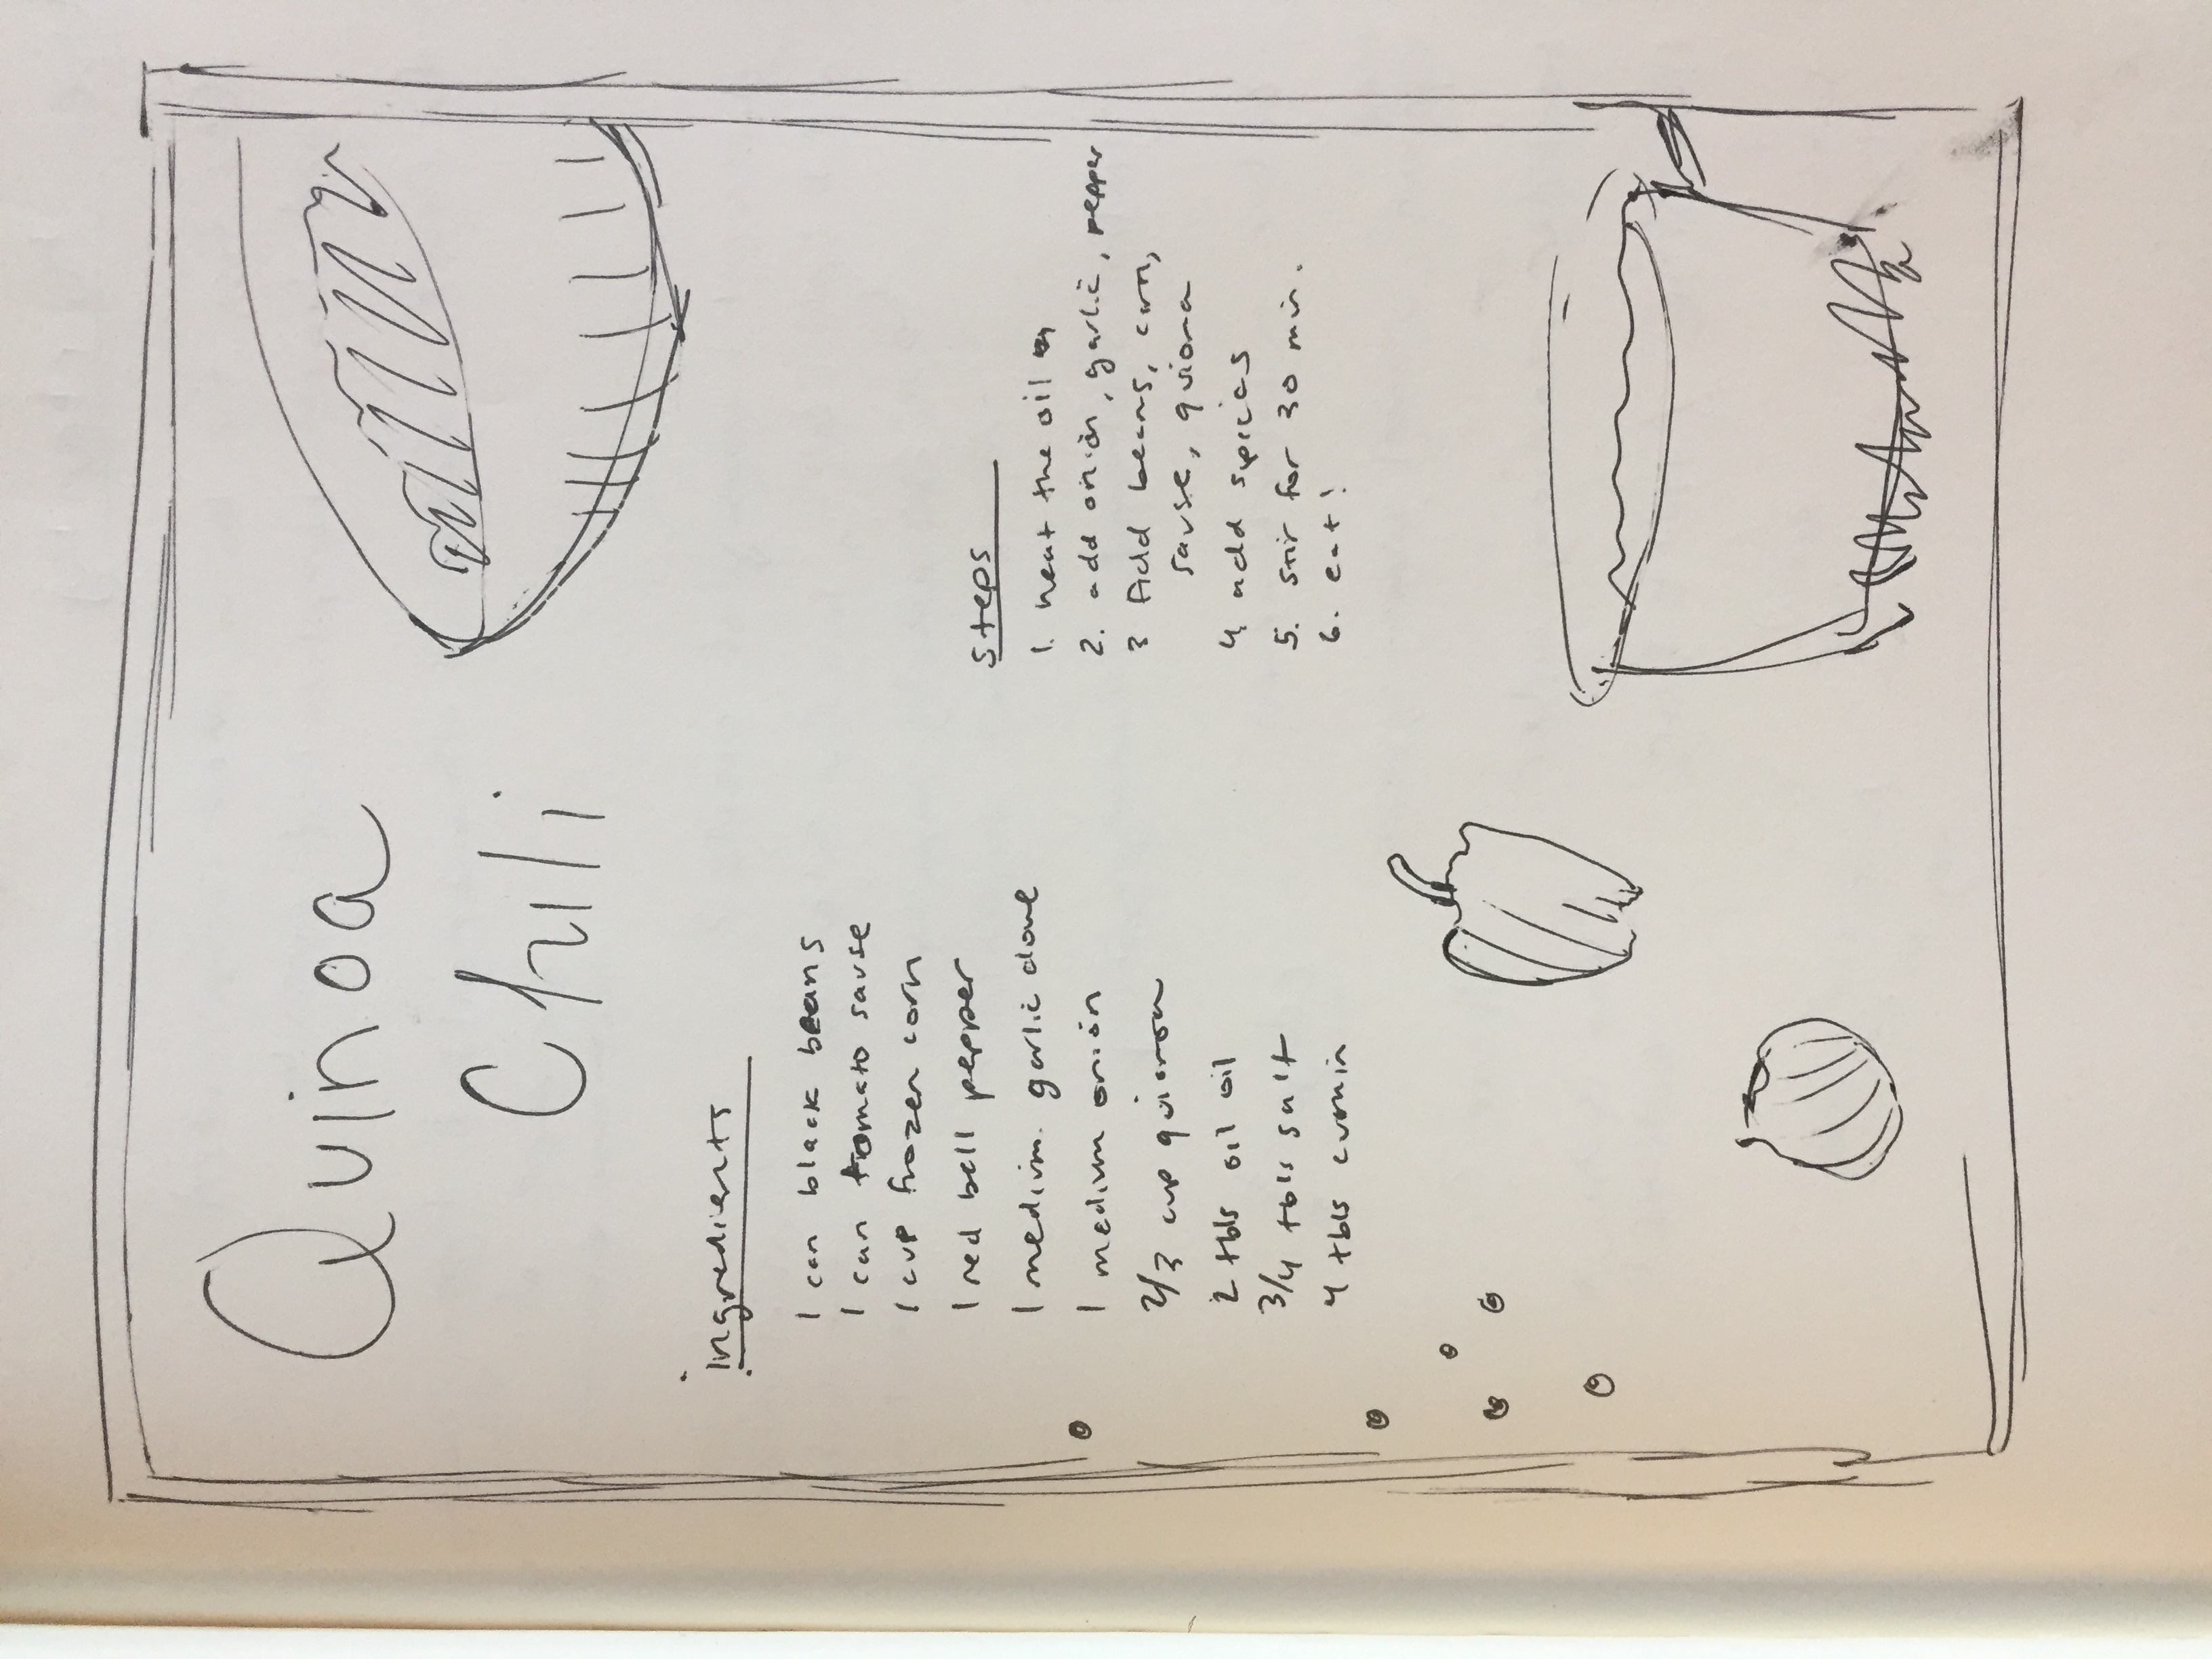 Quinoa
Chili
ingredients
1 can black beans
1 can tomato sause
1 cup frozen corn
1 red bell pepper
1 medium garlic clove
1 medium onion
2/3 cup quionoa
2 tbls oil oil
3/4 tbls salt
4 tbls cumin
Steps
1. heat the oil
2. add onion, garlic, pepper
3 Add beans, corn,
sause, quiona
4. add spices
5. stir for 30 min.
6. eat!